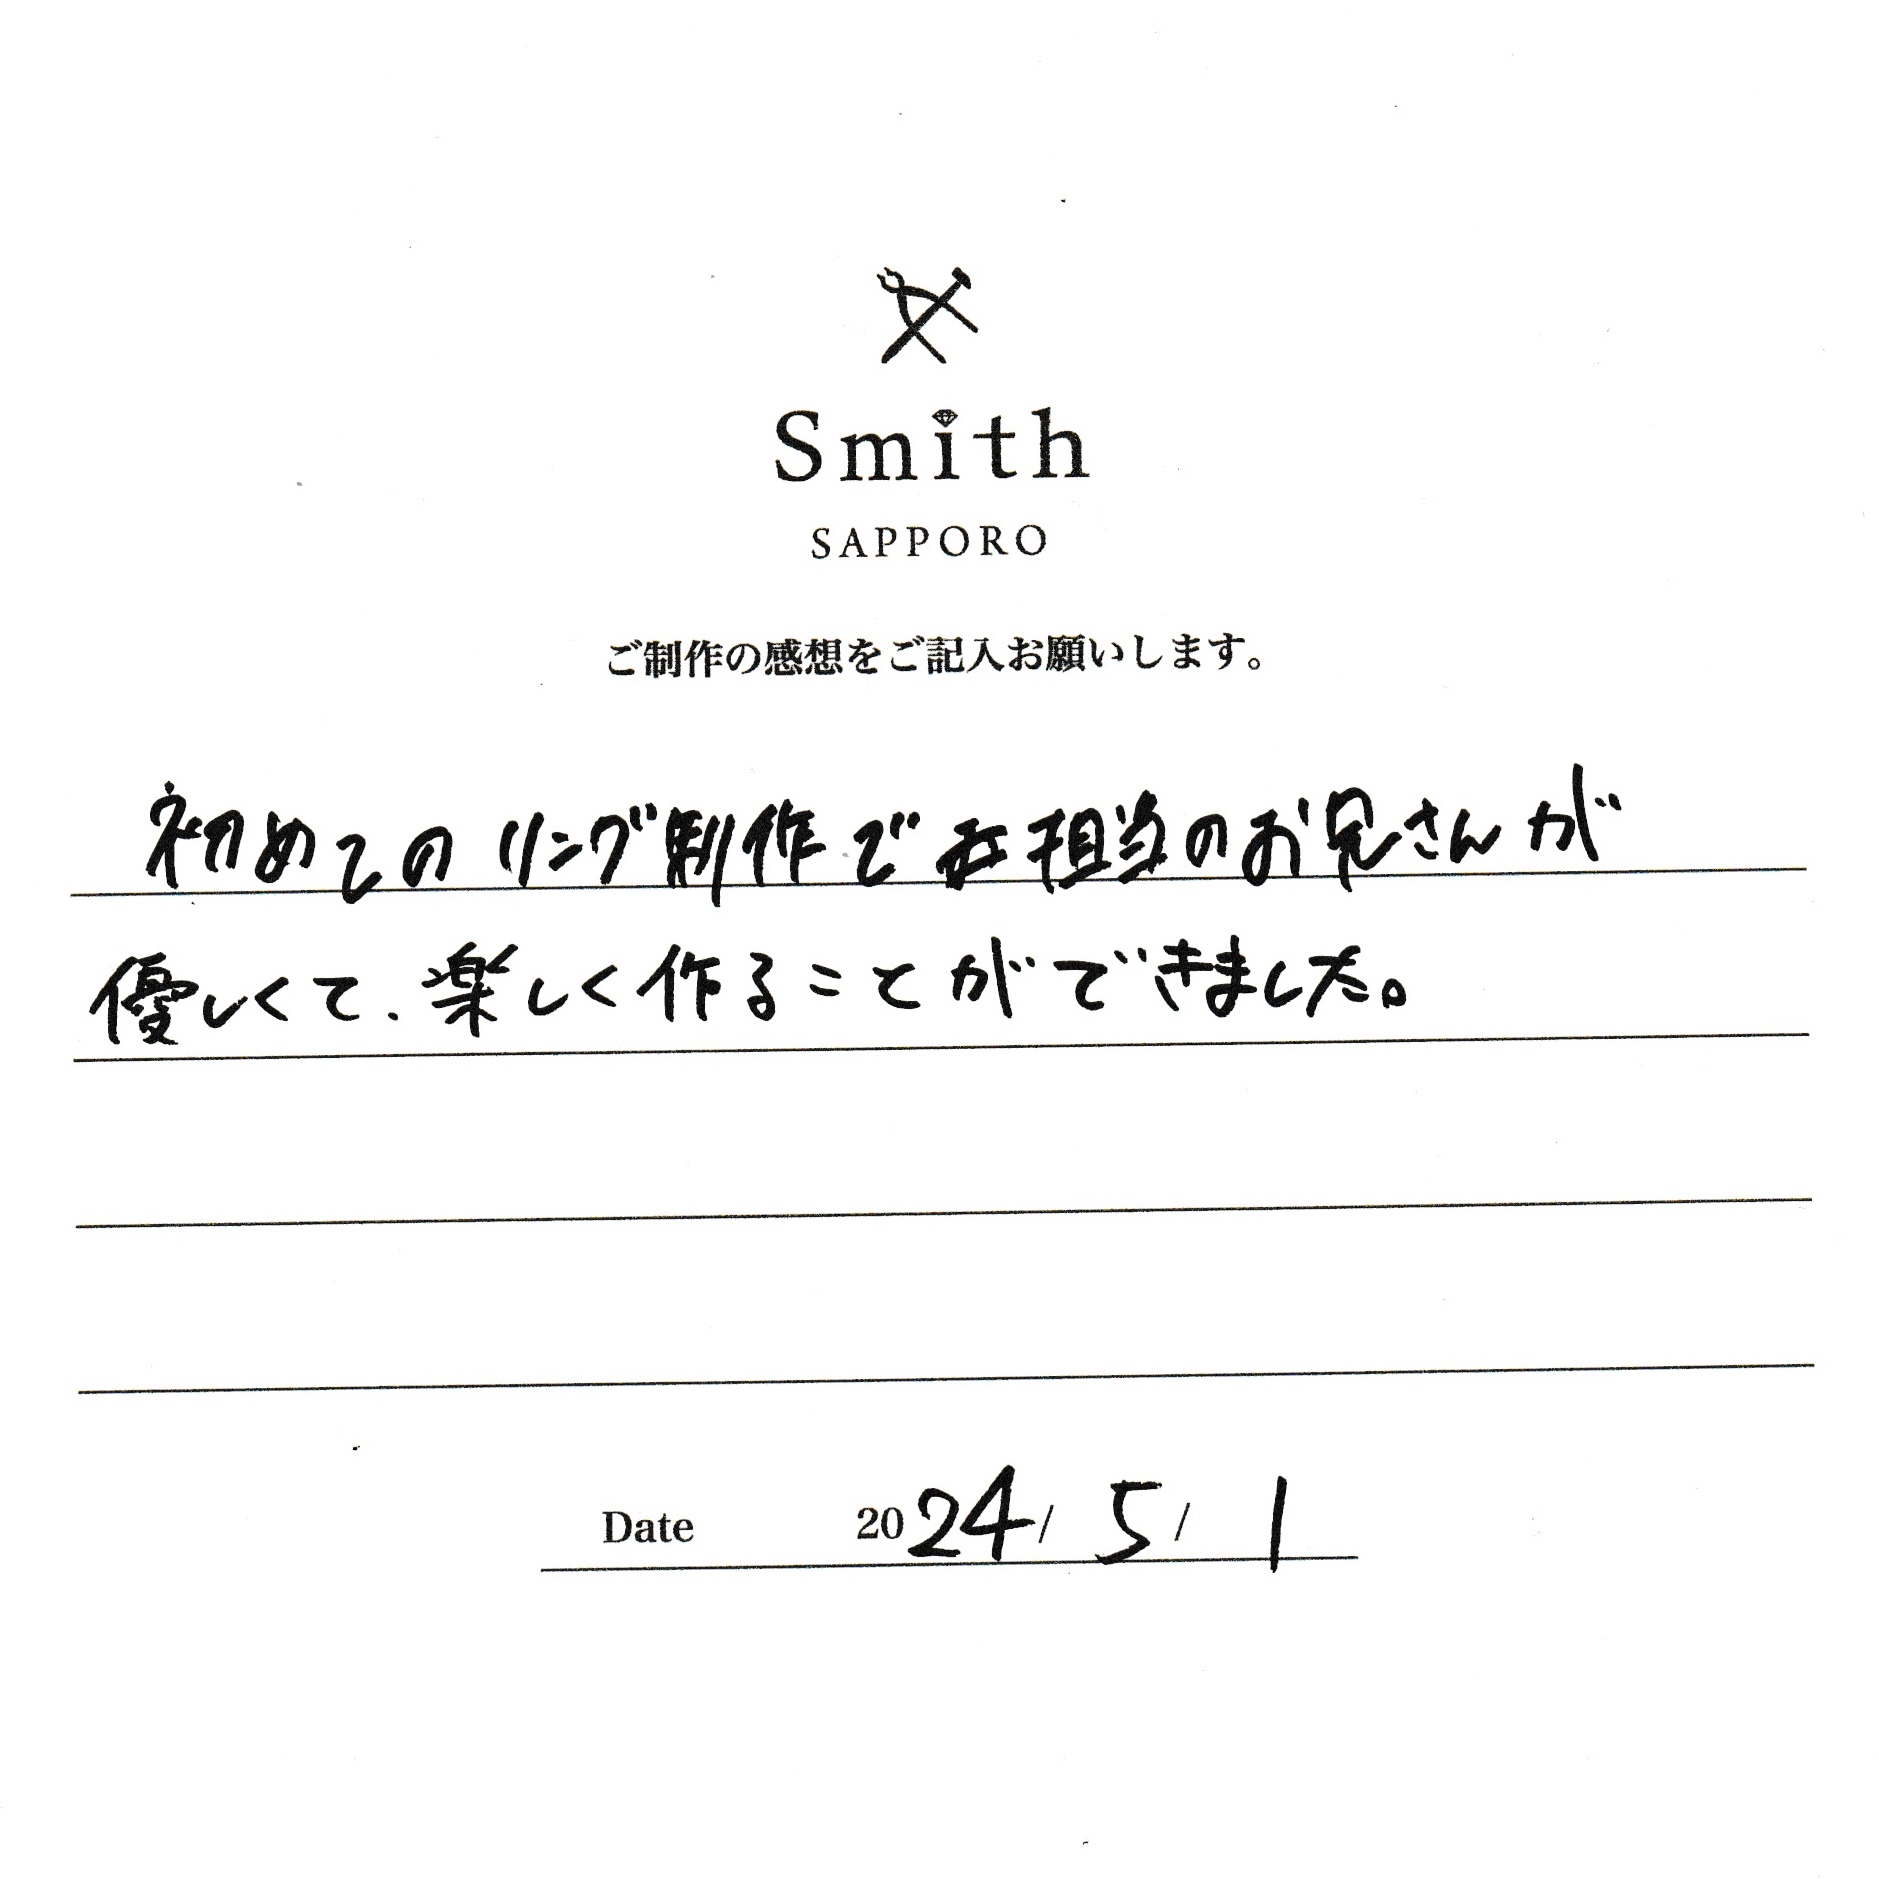 Smith
SAPPORO
ご制作の感想をご記入お願いします。
初めてのリング制作で担当のお兄さんが
優しくて、楽しく作ることができました。
Date 2024/5/1